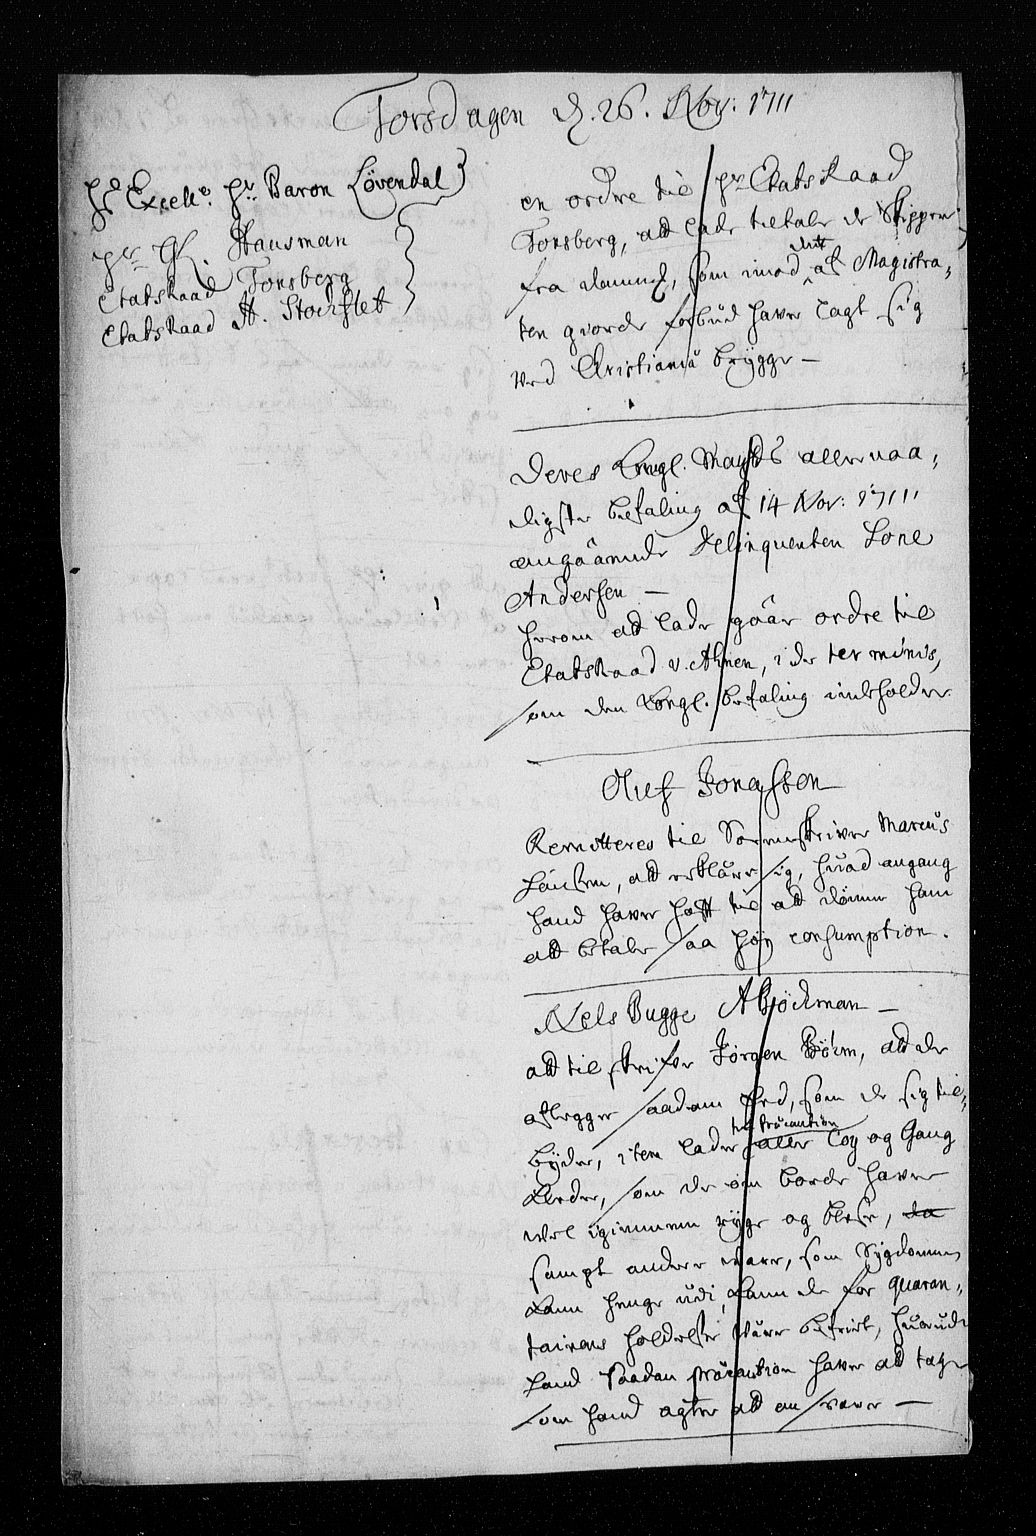 Torsdagen d. 26. Nov: 1711
Hs Excelle. Hr Baron Løvendal
Hr HK. Hausman
Etatsraad Tonsberg
Etatsraad H. Stockflet
en ordre til Hr Etatsraad
Tonsberg, att lade tiltale de Skippere
fra Dannem, som imod dette af Magistra-
ten giorde forbud hafve lagt sig
ved Christiania brygge —
Deres Kongl. Mayts allernaa-
digste befaling af 14 Nov: 1711
angaaende Delinquenten Lone
Andersen —
herom att lade gaar ordre til
Etatsraad v. Ahnen, i de terminis,
som den Kongl. befaling indeholder
Oluf Jonassen
Remitteres til Sorenskrifver Marcus
Hansen, att erklære sig, huad angang
hand hafver hafft til att dømme ham
att betale saa høy consumption.
Nels Bugge A Biöckman —
att tilskrifve Jørgen Böcen, att de
aflegger saadan Eed, som de sig til-
byder, item lader til præcaution aller Toy og Gang
Kleder, som de om borde hafver
vel igiennem ryge og blese, da
sampt andere vare, som Sygdommen
kann henge udi, kann de for quaran-
tainens holdelse være befriet, huorudi
hand saadan præcaution hafver att tage
som hand agter att ansvare —